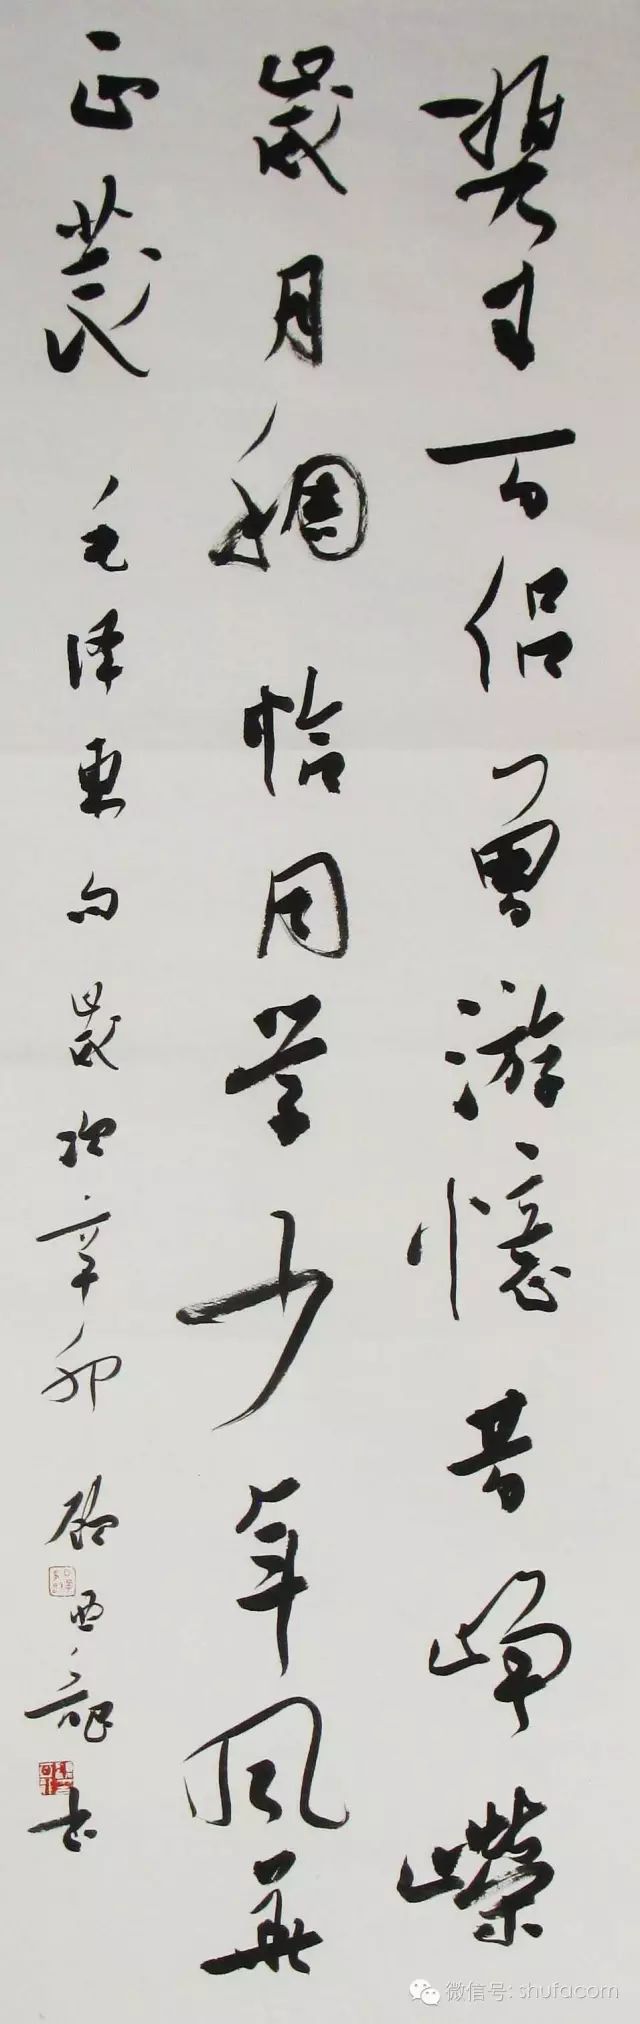 携来百侣曾游憶昔峥嵘
歲月稠恰同学少年风華
正茂 毛泽東句歲次辛卯顾亞龍书
微信号: shufacom